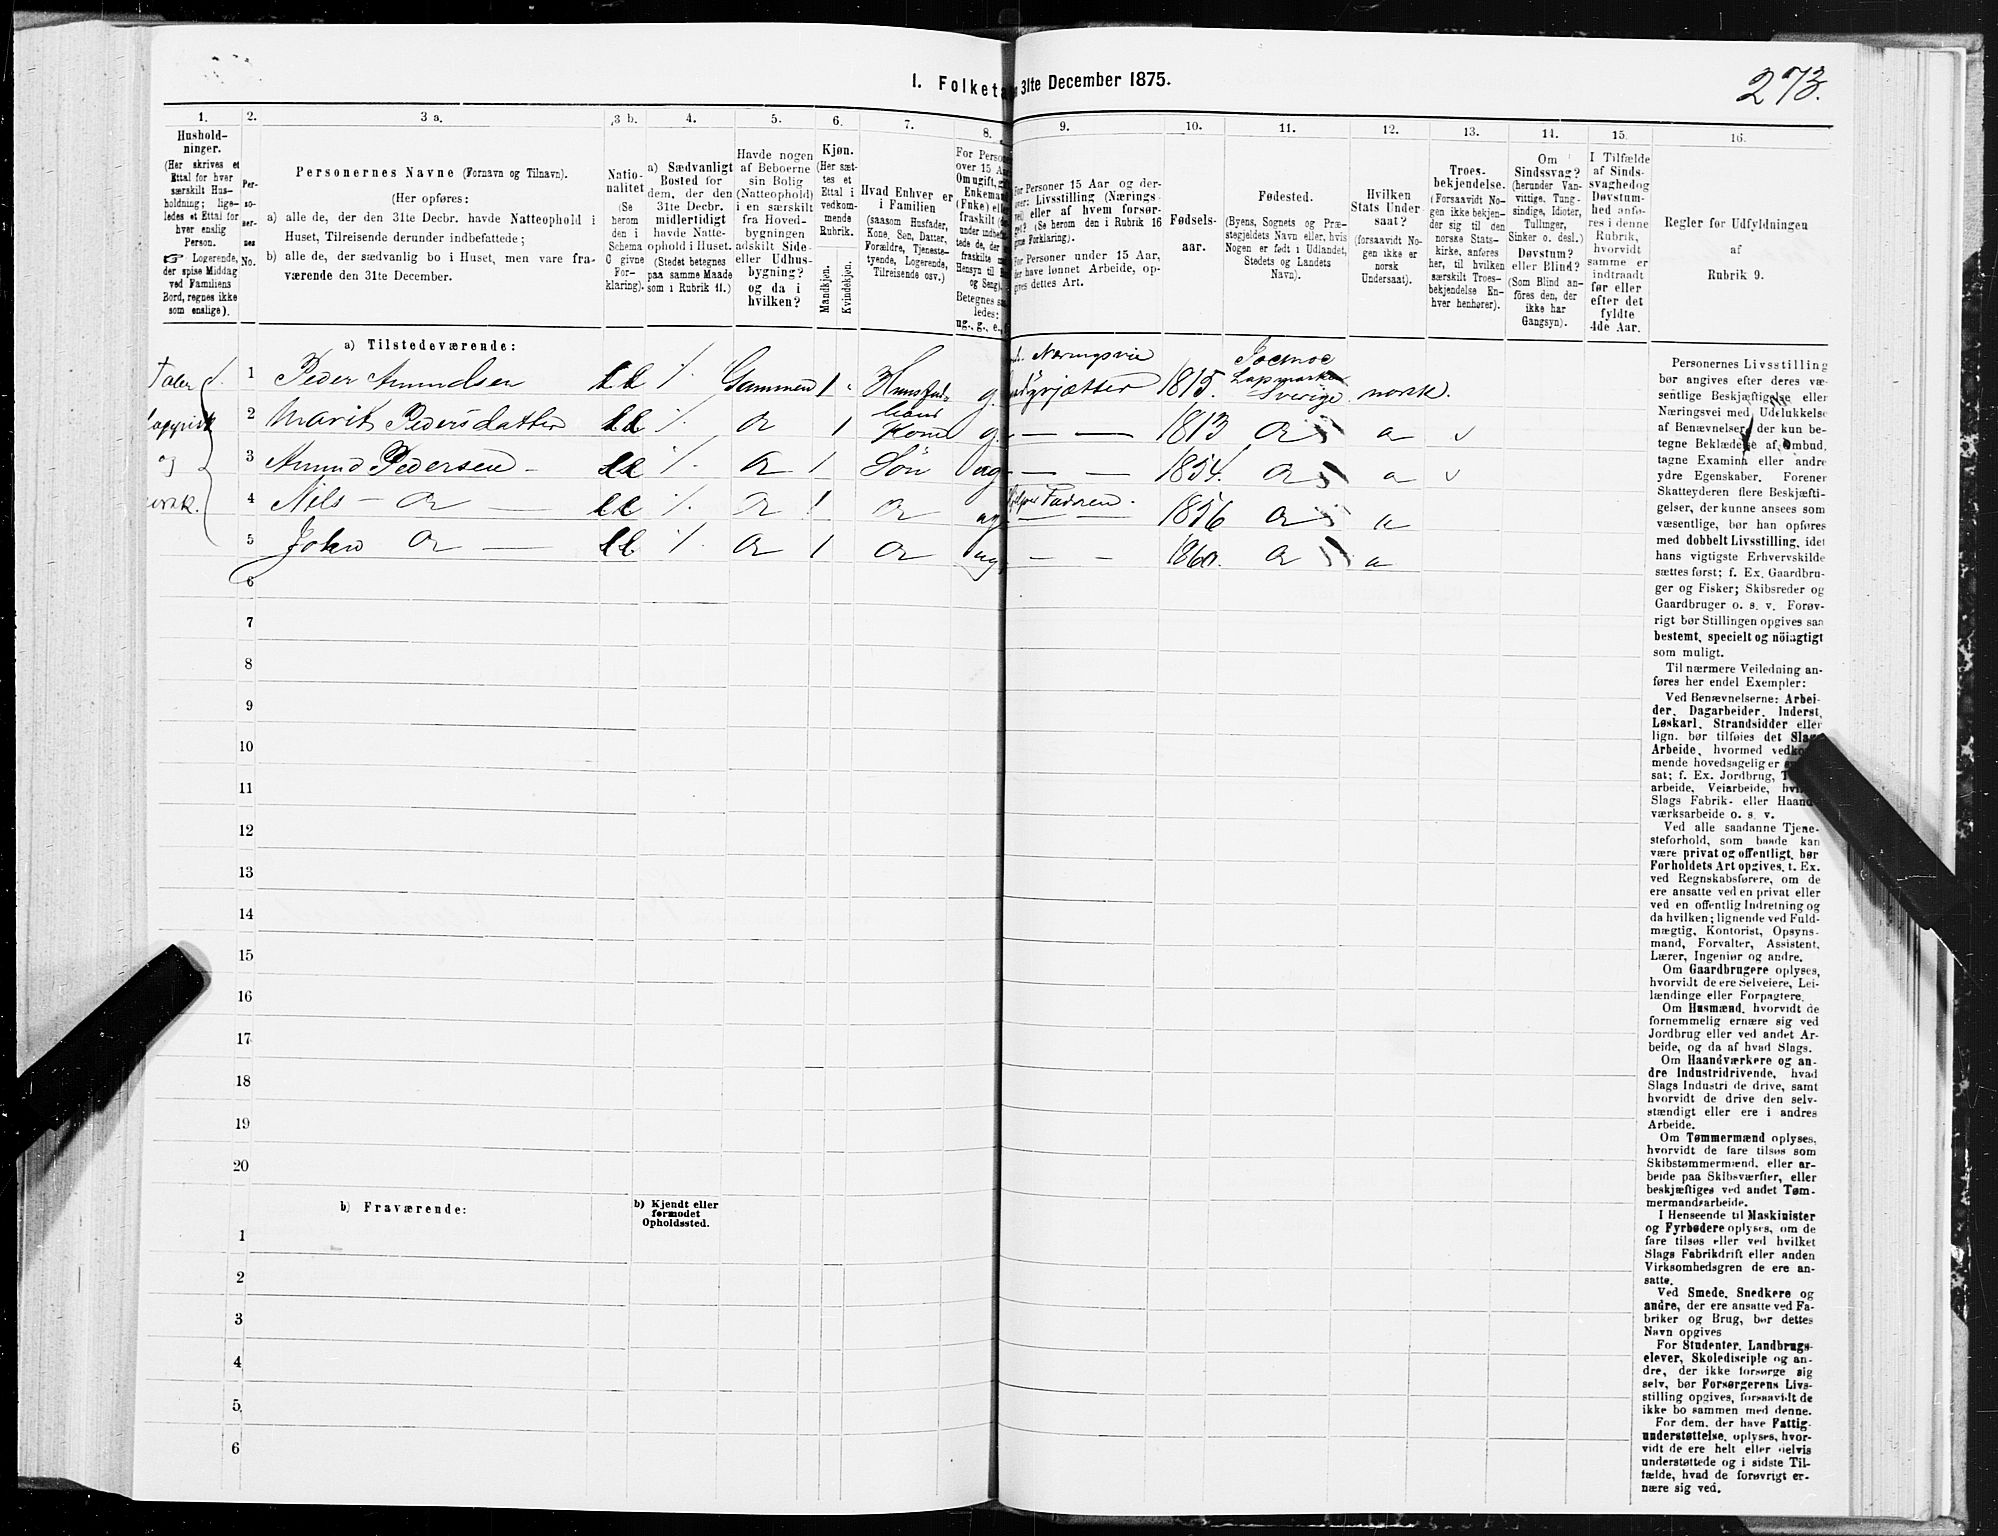 I. Folketa 31te December 1875.
273.
1.
Hushold-
ninger.
(Her skrives et
Ettal for hver
særskilt Hus-
holdning; lige-
ledes et Ettal for
hver enslig
Person.
☞ Logerende,
der spise Middag
ved Familiens
Bord, regnes ikke
som enslige).
2.
Per-
so-
ner-
nes
No.
3 a.
Personernes Navne (Fornavn og Tilnavn).
(Her opføres:
a) alle de, der den 31te Decbr. havde Natteophold i
Huset, Tilreisende derunder indbefattede;
b) alle de, der sædvanlig bo i Huset, men vare fra-
værende den 31te December.
3 b.
Natio-
nalitet
(Se
herom
den i
Schema
C givne
For-
klaring).
4.
a) Sædvanligt
Bosted for
dem, der den
31te Decbr.
midlertidigt
havde Natte-
ophold i Huset.
(Stedet betegnes
paa samme Maade
som i Rubrik 11.)
5.
Havde nogen
af Beboerne
sin Bolig
(Natteophold)
i en særskilt
fra Hoved-
bygningen
adskilt Side-
eller Udhus-
bygning?
og da i
hvilken?
6.
Kjøn.
(Her sæt-
tes et
Ettal i
vedkom-
mende
Rubrik.
Mandkjøn.
Kvindekjøn.
7.
Hvad Enhver er
i Familien
(saasom Husfader,
Kone, Søn, Datter,
Forældre, Tjeneste-
tyende, Logerende,
Tilreisende osv.)
8.
For Persone
over 15 Aar
Om ugift, g
Enkemand
(Fnke) eller
fraskilt
ledes:
ug., g., e.,
9.
For Personer 15 Aar og der-
over: Livsstilling (Nærings-
vei) eller af hvem forsør-
get? (Se herom den i Rubrik 16
givne Forklaring).
For Personer under 15 Aar,
der have lønnet Arbeide, op-
gives dettes Art.
10.
Fødsels-
aar.
11.
Fødested.
(Byens, Sognets og Præ-
stegjeldets Navn eller, hvis
Nogen er født i Udlandet,
Stedets og Landets
Navn).
12.
Hvilken
Stats Under-
saat?
(forsaavidt No-
gen ikke er
norsk
Undersaat).
13.
Troes-
bekjendelse.
(Forsaavidt No-
gen ikke bekjen-
der sig til den
norske Stats-
kirke, anføres
her, til hvilken
særskilt Troes-
bekjendelse En-
hver henhører).
14.
Om
Sindssvag?
(herunder Van-
vittige, Tung-
sindige, Idioter,
Tullinger,
Sinker o. desl.)
Døvstum?
eller Blind?
(Som Blind an-
føres den, der
ikke har
Gangsyn).
15.
I Tilfælde
af Sinds-
svaghed og
Døvstum-
hed anfø-
res i denne
Rubrik,
hvorvidt
samme er
indtraadt
før eller
efter det
fyldte
4de Aar.
16.
Regler før Udfyldningen
af
Rubrik 9.
a) Tilstedeværende:
Taler
lappisk
og
norsk.
1 Peder Amundsen ll ·/. Gammen 1 Huusfad. g. 1815. Jocmoc Lapmarken Sverige norsk.
Næringsvei
2 Marit Pedersdatter ll ·/. do 1 hans Kone g. — — 1813 do do
3 Amund Pedersen ll ·/. do 1 Søn ug — — 1854. do do
4 Nils — do — ll ·/. do 1 do ug Hjelper Fadren. 1856 do do
5 John do — ll ·/. do 1 do ug — — 1860. do do
6
7
8
9
10
11
12
13
14
15
16
17
18
19
20
b) Fraværende:
b) Kjendt eller
formodet
Opholdssted.
1
2
3
4
5
6
Personernes Livsstilling
bør angives efter deres væ-
sentlige Beskjæftigelse eller
Næringsvei med Udelukkelse
af Benævnelser, der kun be-
tegne Beklædelse af Ombud,
tagne Examina eller andre
ydre Egenskaber. Forener
Skatteyderen flere Beskjæfti-
gelser, der kunne ansees som
væsentlige, bør han opføres
med dobbelt Livsstilling, idet
hans vigtigste Erhvervskilde
sættes først; f. Ex. Gaardbru-
ger og Fisker; Skibsreder og
Gaardbruger o. s. v. Forøv-
rigt bør Stillingen opgives saa
bestemt, specielt og nöiagtigt
som muligt.
Til nærmere Veiledning an-
føres her endel Exempler:
Ved Benævnelserne: Arbei-
der, Dagarbeider, Inderst,
Løskarl, Strandsidder eller
lign. bør tilføies det Slags
Arbeide, hvormed vedkom-
mende hovedsagelig er
sat; f. Ex. Jordbrug,
arbeide, Veiarbeide,
Slags Fabrik- eller Haand-
værksarbeide o. s. v.
Ved alle saadanne Tjene-
steforhold, som baade kan
være privat og offentligt, bør
Forholdets Art opgives, t. Ex.
ved Regnskabsførere, om de
ere ansatte ved en privat eller
ved en offentlig Indretning og
da hvilken; lignende ved Fuld-
mægtig, Kontorist, Opsyns-
mand, Forvalter, Assistent,
Lærer, Ingeniør og andre.
Om Gaardbrugere oplyses,
hvorvidt de ere Selveiere, Lei-
lændinge eller Forpagtere.
Om Husmænd, hvorvidt de
fornemmelig ernære sig ved
Jordbrug eller ved andet Ar-
beide, og da af hvad Slags.
Om Haandværkere og an-
dre Industridrivende, hvad
Slags Industri de drive, samt
hvorvidt de drive den selv-
stændigt eller ere i andres
Arbeide.
Om Tømmermænd oplyses,
hvorvidt de fare tilsøs som
Skibstømmermænd, eller ar-
beide paa Skibsværfter, eller
beskjæftiges ved andet Tøm-
mermandsarbeide.
I Henseende til Maskinister
og Fyrbødere oplyses, om de
fare tilsøs eller ved hvilket
Slags Fabrikdrift eller anden
Virksomhedsgren de ere an-
satte.
Ved Smede, Snedkere og
andre, der ere ansatte ved Fa-
briker og Brug, bør dettes
Navn opgives
For Studenter, Landbrugs-
elever, Skoledisciple og an-
dre, der ikke forsørge sig
selv, bør Forsørgerens Livs-
stilling opgives, forsaavidt de
ikke bo sammen med denne.
For dem, der have Fattig-
understøttelse, oplyses, hvor-
vidt de ere helt eller delvis
understøttede og i sidste Til-
fælde, hvad de forøvrigt er-
nære sig ved.